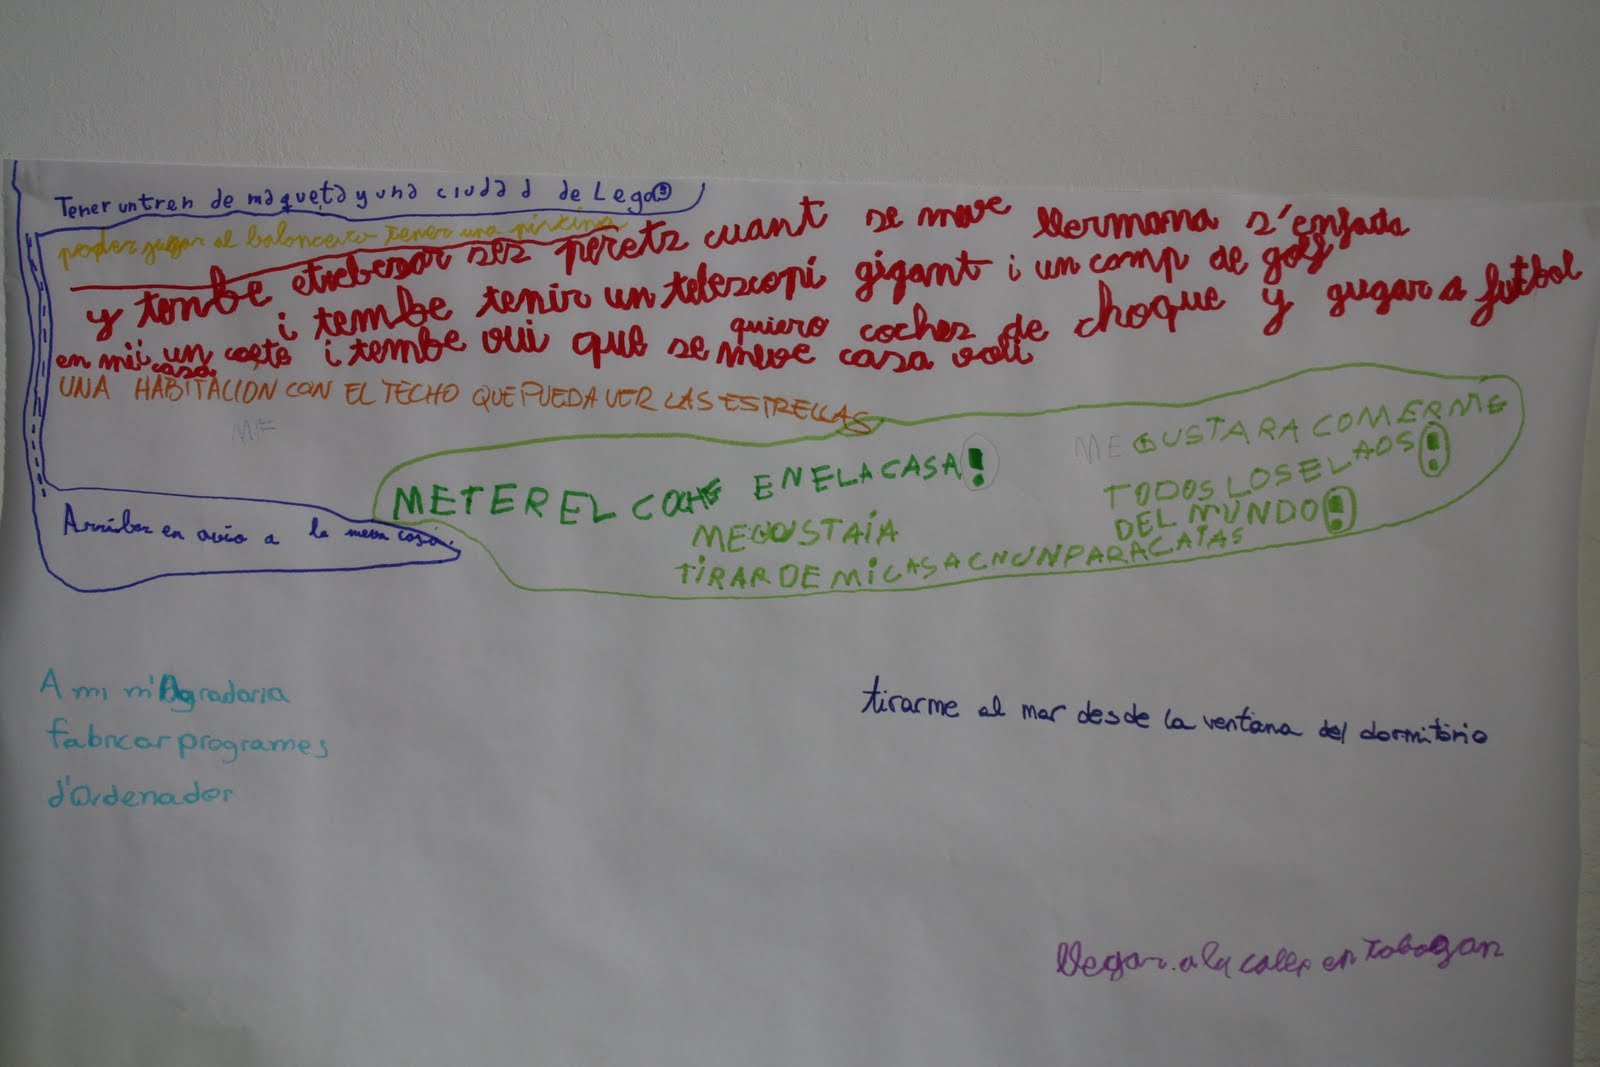 Tener un tren de maqueta y una ciudad de Lego®
poder jugar al baloncesto tener una piscina
y tombe etrebesar ses perets cuant se meve Germana s'enfada
i tembe tenir un telescopi gigant i un camp de golf
en mi casa un coete i tembe vui que se meve casa voli
quiero coches de choque y gugar a futbol
UNA HABITACIÓN CON EL TECHO QUE PUEDA VER LAS ESTRELLAS
ME
METER EL COCHE EN ELA CASA!
ME GUSTARA COMERME
TODOS LOS ELAOS!
DEL MUNDO!
ME GUSTAÍA
TIRAR DE MI CASA CNUN PARACAÍAS
Arribar en avio a la meva casa.
A mi m'Agradaria
fabricar programes
d'Ordenador
tirarme al mar desde la ventana del dormitorio
llegar a la calle en tobogan